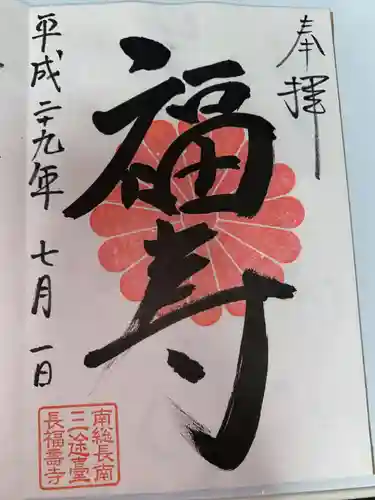 奉拝
福寿
平成二十九年 七月一日
南総長南
三途臺
長福壽寺